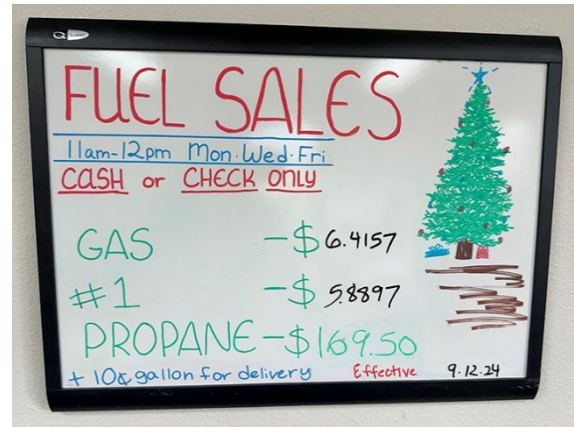 FUEL SALES
11am-12pm Mon·Wed·Fri
CASH or CHECK ONLY
GAS -$ 6.4157
#1 -$ 5.8897
PROPANE-$169.50
+ 10¢ gallon for delivery Effective 9.12.24